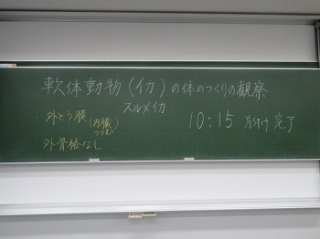 軟体動物(イカ)の体のつくりの観察
スルメイカ
・外とう膜(内臓つつむ)
外骨格なし
10:15 片付け完了